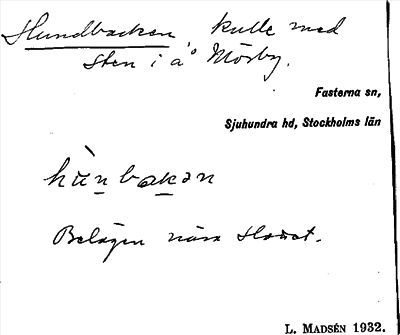 Hundbacken, kulle med
sten i å Mörby.
Fasterna sn,
Sjuhundra hd, Stockholms län
hùnbakən
Belägen nära
L. MADSÉN 1932.